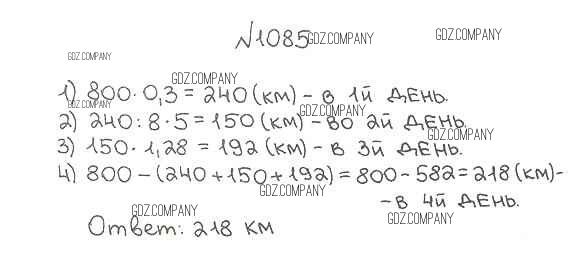 №1085 GDZ.COMPANY GDZ.COMPANY
GDZ.COMPANY
GDZ.COMPANY
1) 800·0,3=240(км)-в 1й день.
GDZ.COMPANY GDZ.COMPANY
2) 240:8·5=150(км)-во 2й день.
GDZ.COMPANY
3) 150·1,28=192(км)-в 3й день.
4) 800-(240+150+192)=800-582=218(км)-
GDZ.COMPANY
-в 4й день.
GDZ.COMPANY GDZ.COMPANY
Ответ: 218 км